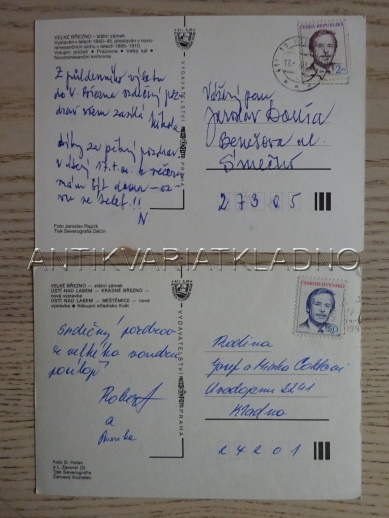 VELKÉ BŘEZNO – státní zámek
Vystavěn v letech 1842-45, přestavěn v novo-
renesančním slohu v letech 1885-1910.
Vstupní průčelí • Pracovna • Velký sál •
Novorenesanční knihovna
Z půldenního výletu
do V. Března srdečný poz
drav všem zasílá Nikola
díky za pěkný pozdrav
v úterý 17.t.m. večer
mám být doma
se telef.!!
N
Foto Jaroslav Rajzík
Tisk Severografia Děčín
VYDAVATELSTVÍ PRAHA
ČESKÁ REPUBLIKA
2
Vážený pan
Jaroslav
Benešova ul.
Smečno
27305
ANTIKVARIATKLADNO
VELKÉ BŘEZNO – státní zámek
ÚSTÍ NAD LABEM – KRÁSNÉ BŘEZNO –
nová výstavba
ÚSTÍ NAD LABEM – NEŠTĚMICE – nová
výstavba • Nákupní středisko Květ
Srdečný pozdrav
z velkého vandru
posílají
Robert
a
Monika
Foto D. Holan
Tisk Severografia
Červený Kostelec
VYDAVATELSTVÍ PRAHA
ČESKOSLOVENSKO
Rodina
Josef a Mirka
Vodojemu 2241
Kladno
27201